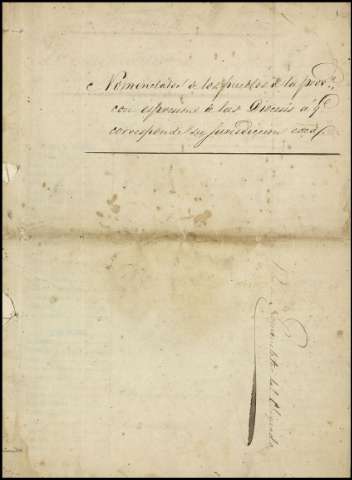 Nomenclator de los pueblos de la prov.ª
con espresion de las Diocesis á q.e
corresponde su jurisdiccion
Nomenclator del